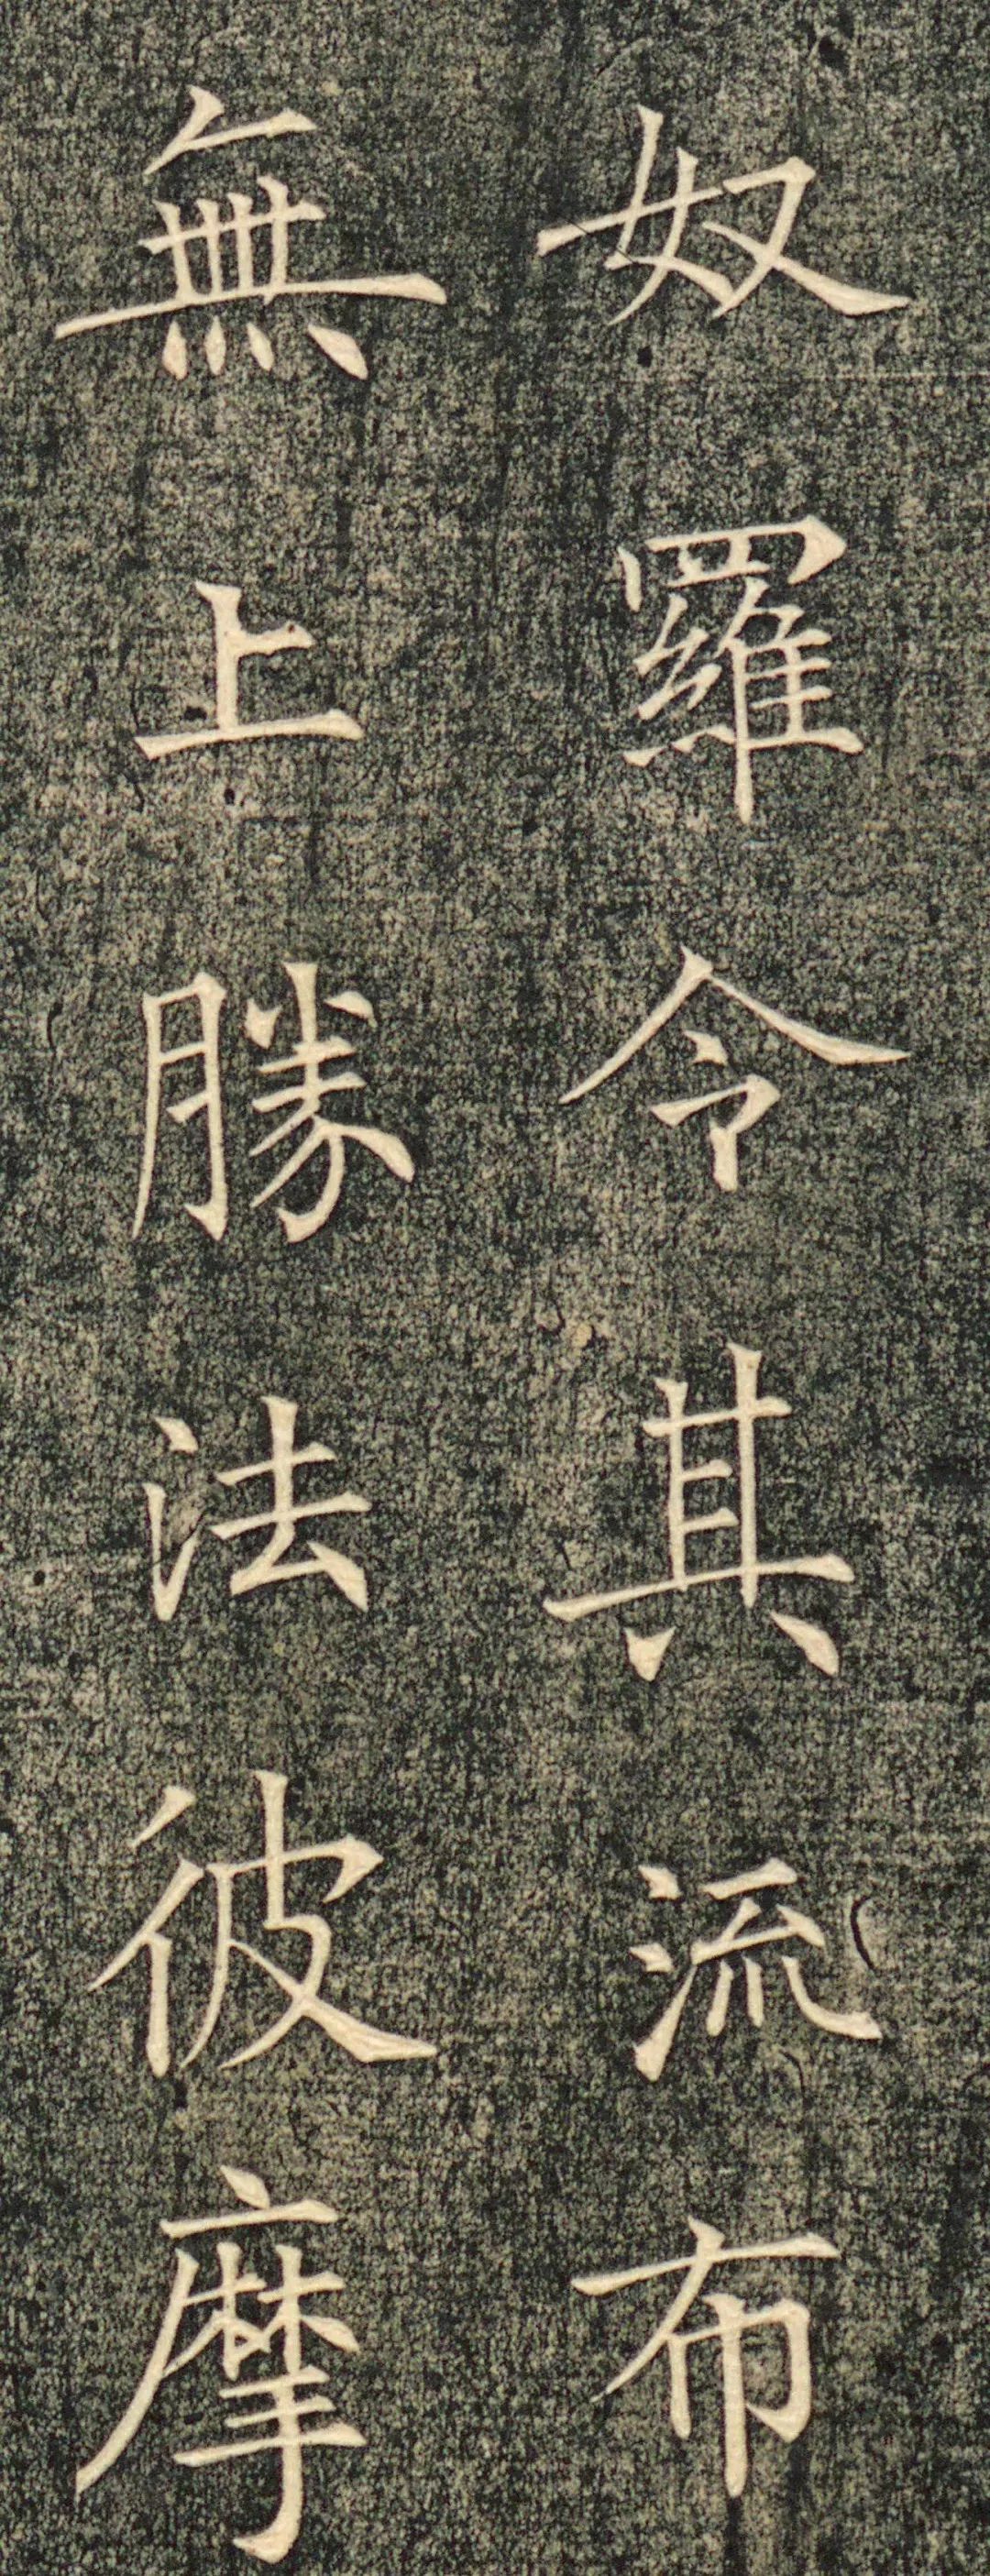 奴羅令其流布
無上勝法彼摩